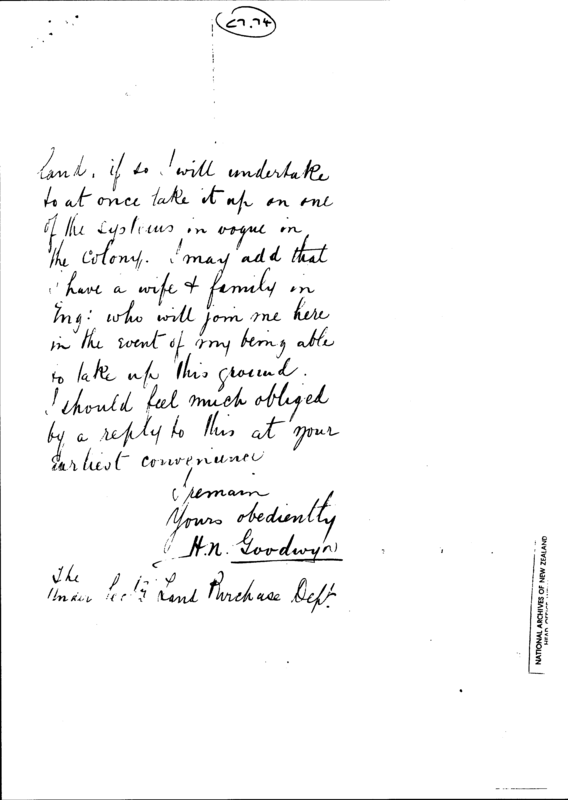 C7.74
land, if so I will undertake
to at once take it up on one
of the systems in vogue in
the Colony. I may add that
I have a wife & family in
Eng: who will join me here
in the event of my being able
to take up this ground.
I should feel much obliged
by a reply to this at your
Earliest convenience
I remain
Yours obediently
H.N. Goodwyn
The
Under Secty Land Purchase Dept.
NATIONAL ARCHIVES OF NEW ZEALAND
HEAD OFFICE